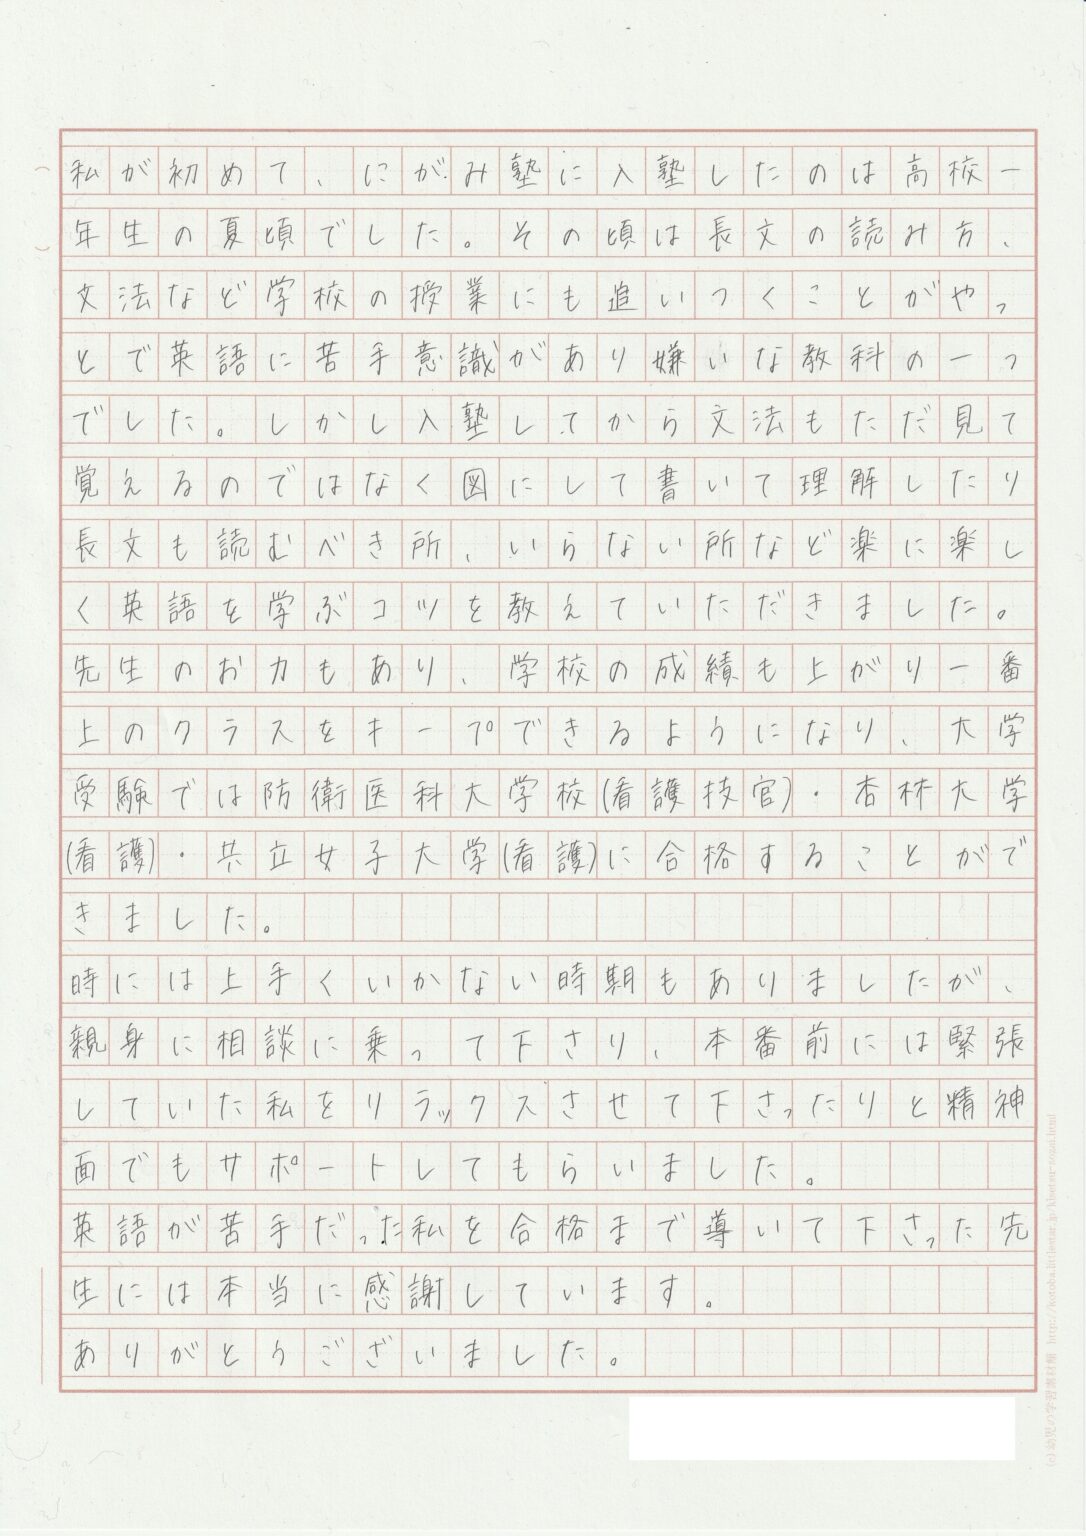 私が初めて、にがみ塾に入塾したのは高校一
年生の夏頃でした。その頃は長文の読み方、
文法など学校の授業にも追いつくことがやっ
とで英語に苦手意識があり嫌いな教科の一つ
でした。しかし入塾してから文法もただ見て
覚えるのではなく図にして書いて理解したり
長文も読むべき所、いらない所など楽に楽し
く英語を学ぶコツを教えていただきました。
先生のお力もあり、学校の成績も上がり一番
上のクラスをキープできるようになり、大学
受験では防衛医科大学校(看護技官)・杏林大学
(看護)・共立女子大学(看護)に合格することがで
きました。
時には上手くいかない時期もありましたが、
親身に相談に乗って下さり、本番前には緊張
していた私をリラックスさせて下さったりと精神
面でもサポートしてもらいました。
英語が苦手だった私を合格まで導いて下さった先
生には本当に感謝しています。
ありがとうございました。
(c) 幼児の学習素材館 http://kotoba.littlestar.jp/kisetsu-sozai.html